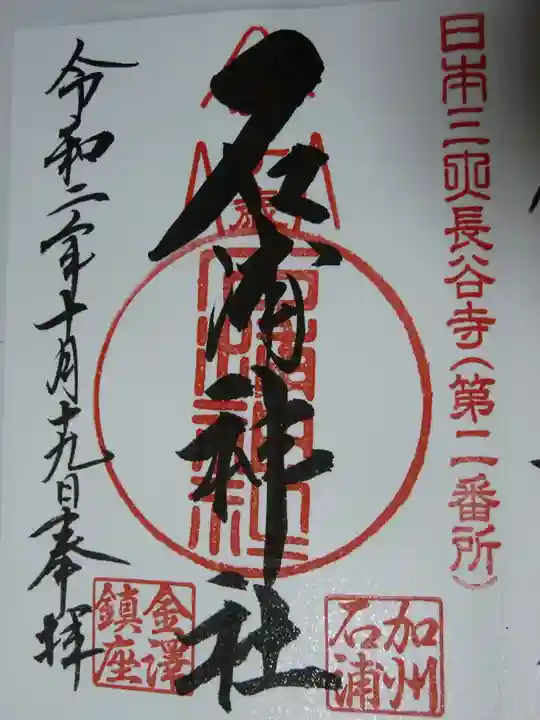 日本三大長谷寺(第二番所)
石浦神社
加州
石浦
令和二年十月十九日奉拝
金澤
鎮座